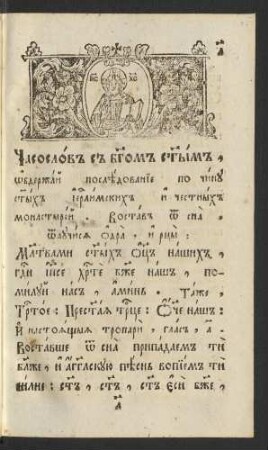 Часосло́въ съ бг҃омъ ст҃ы́мъ,
ѡ҆бдержа́й послѣ́дованїе по чи́ну
ст҃ы́хъ і҆ерⷭ҇ли́мскихъ и҆ честны́хъ
монасты́рей. Воста́въ ѿ сна̀
ѿ ѻ҆дра̀, и҆ рцы̀:
Мл҃твами ст҃ы́хъ ѻ҆ц҃ъ на́шихъ,
гд҇и і҆и҃се хр҇те бж҃е на́шъ, по-
ми́луй на́съ, а҆ми́нь. Та́же,
Трⷭ҇то́е: Прест҃а́ѧ трⷪ҇це: Ѻ҆́ч҃е на́шъ:
И҆ настоѧ́щыѧ тропарѝ, гла́съ, а҃.
Воста́вше ѿ сна̀ припа́даемъ тѝ
бл҃же, и҆ а҆́гг҃льскую пѣ́снь вопїе́мъ тѝ
си́льне: ст҃ъ, ст҃ъ, ст҃ъ є҆сѝ бж҃е,
а҃